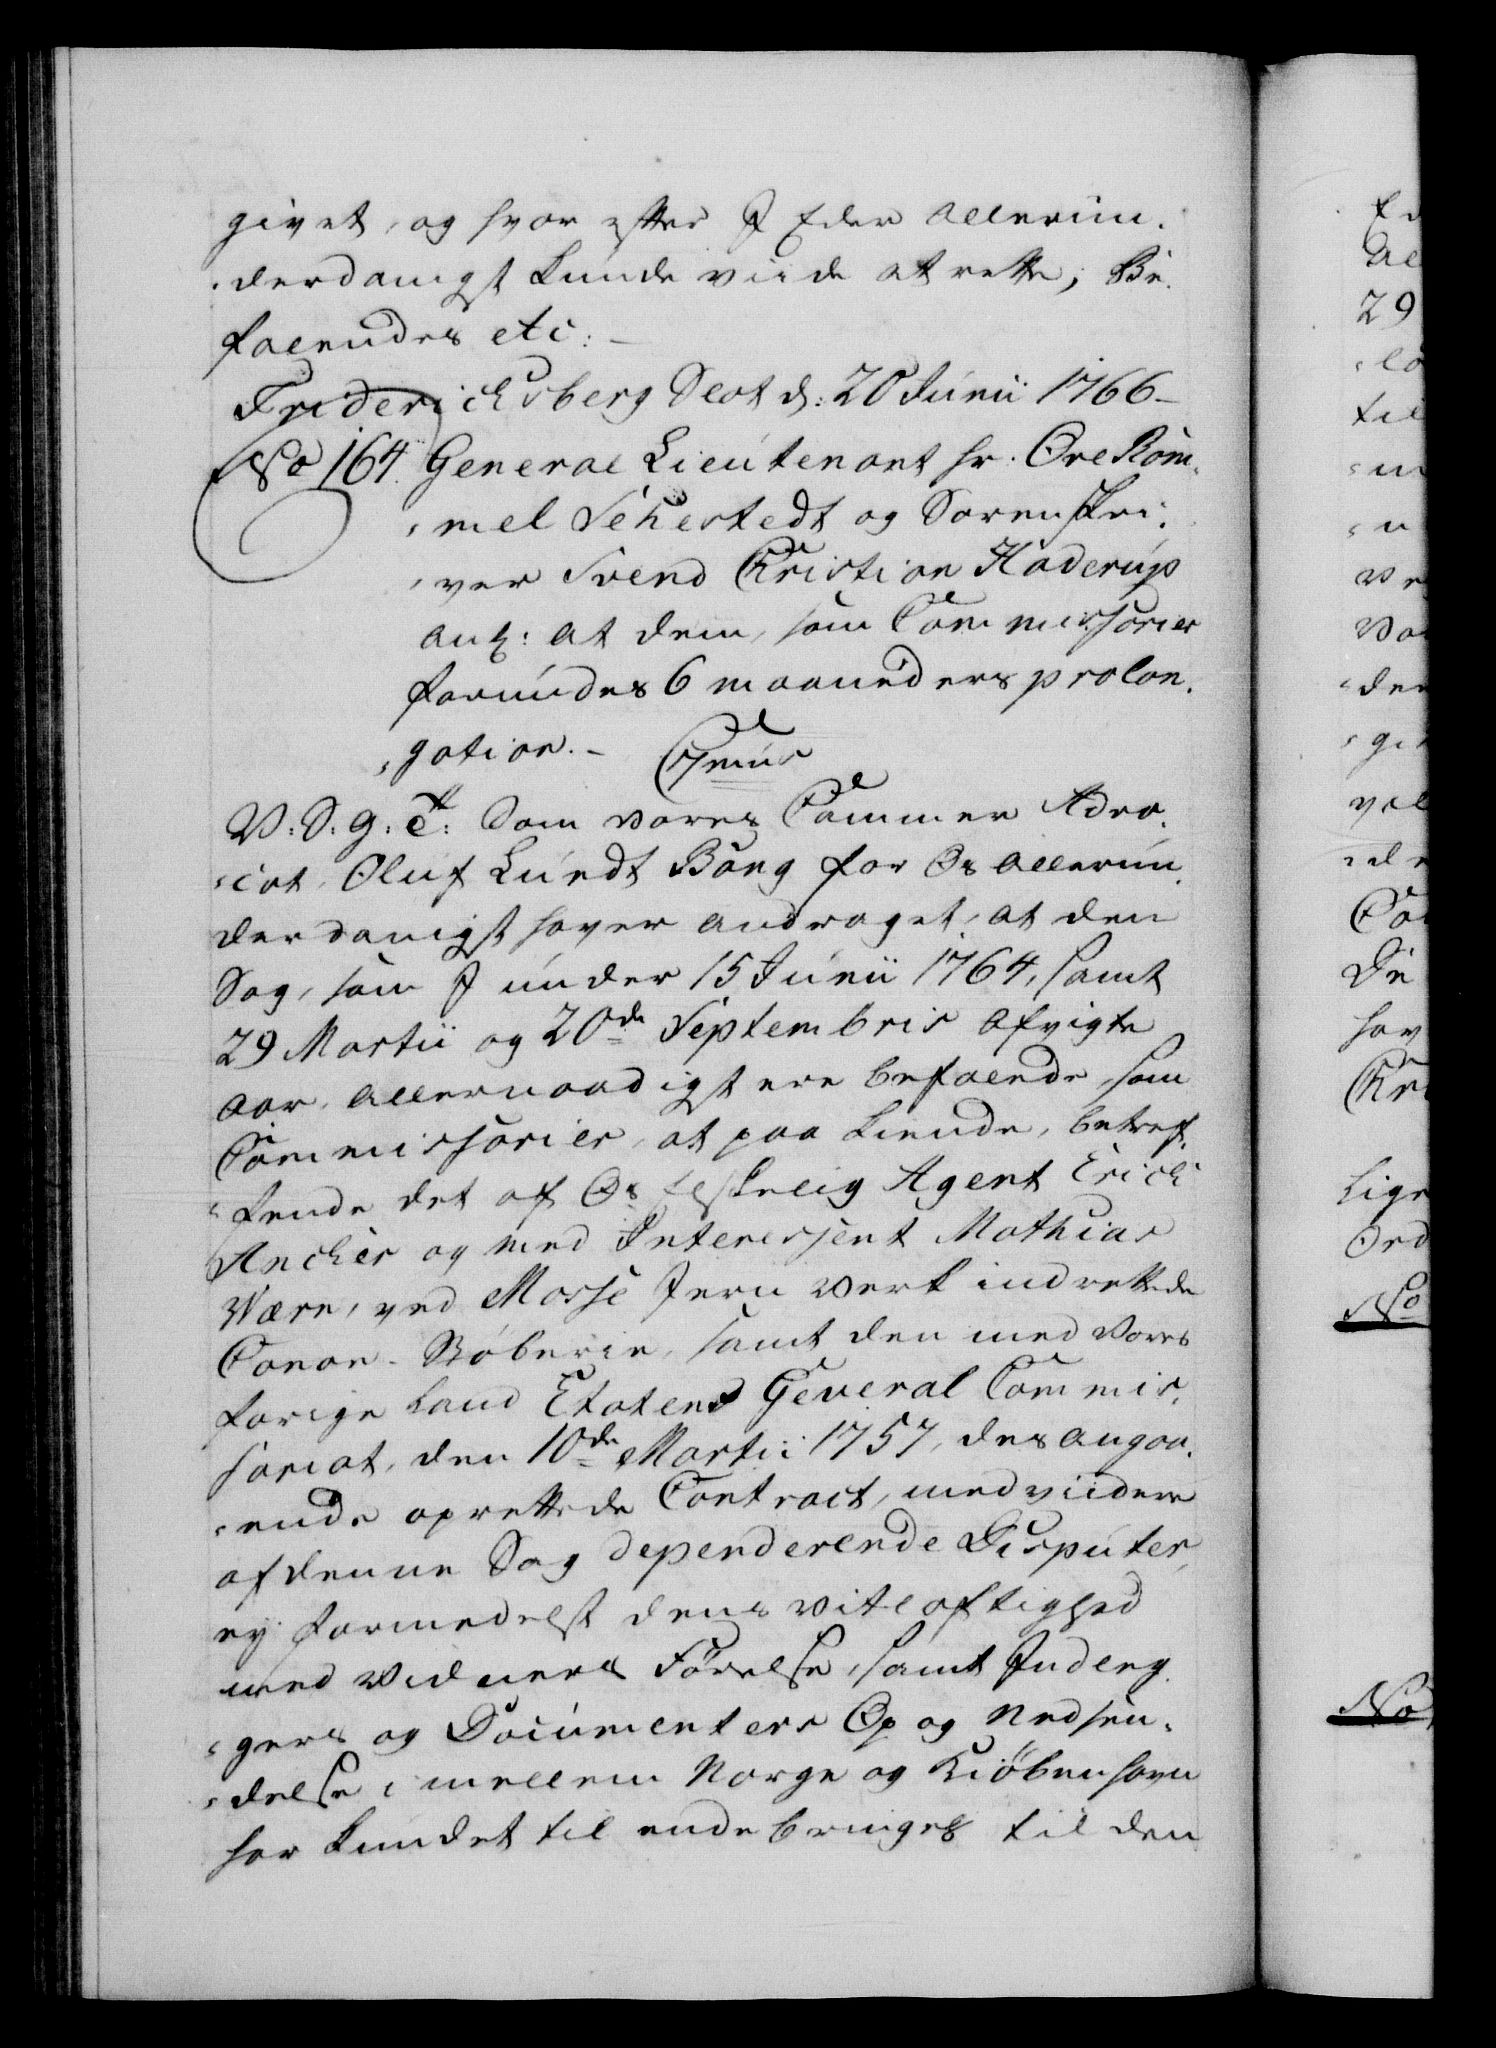 givet, og hvor efter I Eder allerun-
derdanigst kunde viide at rette; Be-
falendes etc: –
Friderichsberg Slot d: 20 Junii 1766 –
No 164. General Lieutenant hr. Ove Rom-
mel Sehestedt og Sorenskri-
ver Svend Christian Haderup
ang: at dem, som Commissarier
forundes 6 maaneders prolon-
gation. –
V: S: G: T: Som vores Cammer Advo-
cat, Oluf Lundt Bang for Os allerun-
derdanigst haver andraget, at den
Sag, som I under 15 Junii 1764, samt
29 Martii og 20de Septembris afvigte
aar, allernaadigst ere befalede, som
Commissarier, at paa kiende, betref-
fende det af Os elskelig Agent Erich
Ancher og med Interessent Mathias
Wærn, ved Mosse Jern verk indrettede
Canon-Støberie, samt den med Vores
forige Land Etatens General Commis-
sariat, den 10de Martii 1757, des angaa-
ende oprettede Contract, med viidere
af denne Sag dependerende Disputer,
ey formedelst dens vitløftighed
med Vidners Førelse, samt Indleg-
gers og Documenters Op og Nedsen-
delse, imellem Norge og Kiøbenhavn
har kundet til ende bringes til den